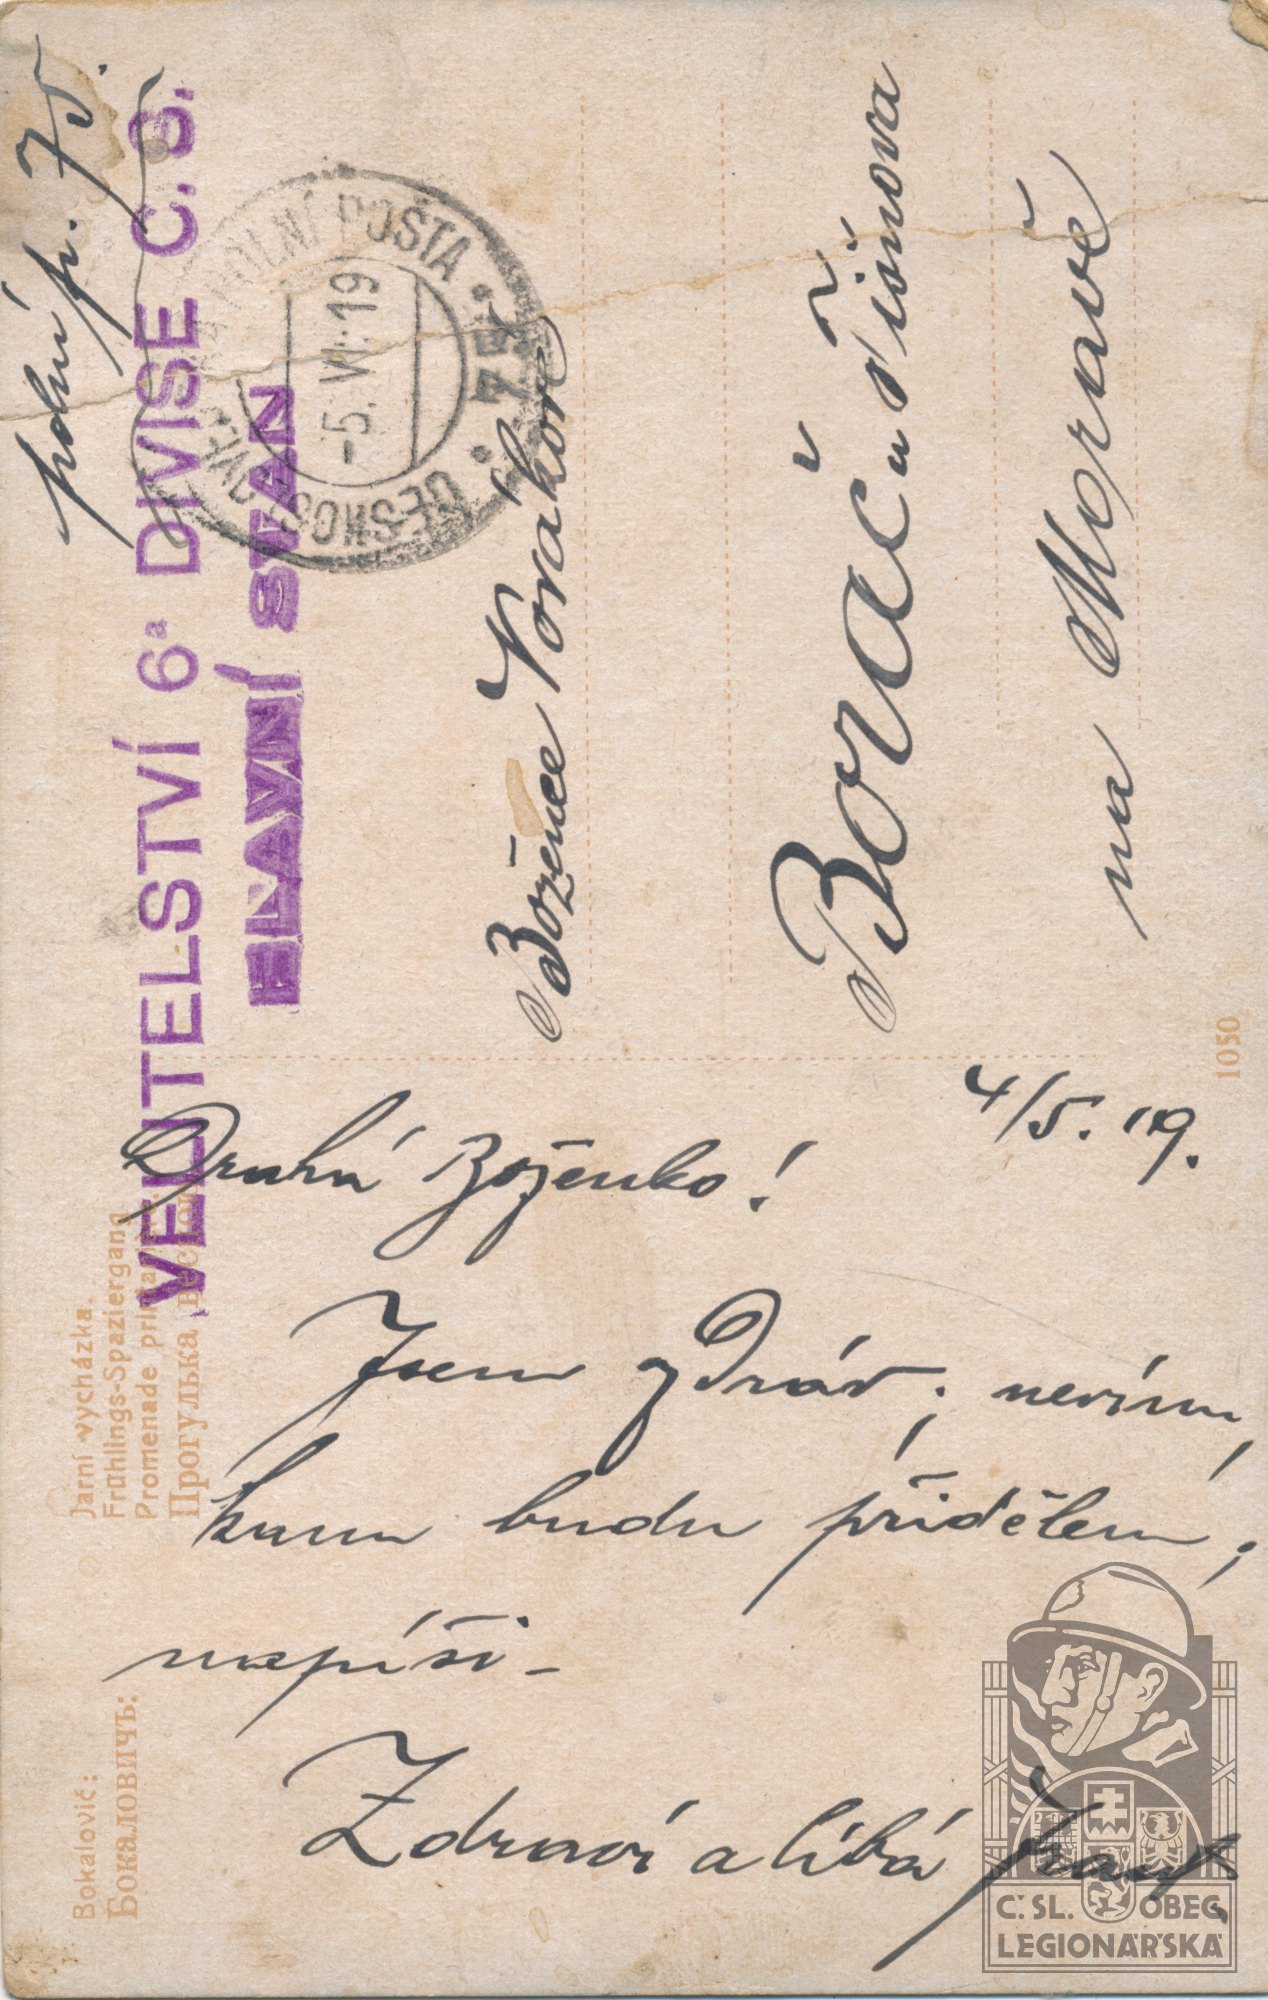 Bokalovič:
Бокаловичъ:
Jarní vycházka.
Frühlings-Spaziergang
Promenade printanière
Прогулька весною
Drahá Boženko!
4/5. 19.
Jsem zdráv; nevím,
kam budu přidělen;
napíši –
Zdraví a líbá
polní p. 75.
VELITELSTVÍ 6ª DIVISE C. S.
HLAVNÍ STAN
POLNÍ POŠTA
ČESKOSLOV.
75
-5. VI. 19
Božence Novákové
Borač u Tišnova
na Moravě
1050
Č. SL. OBEC
LEGIONÁŘSKÁ